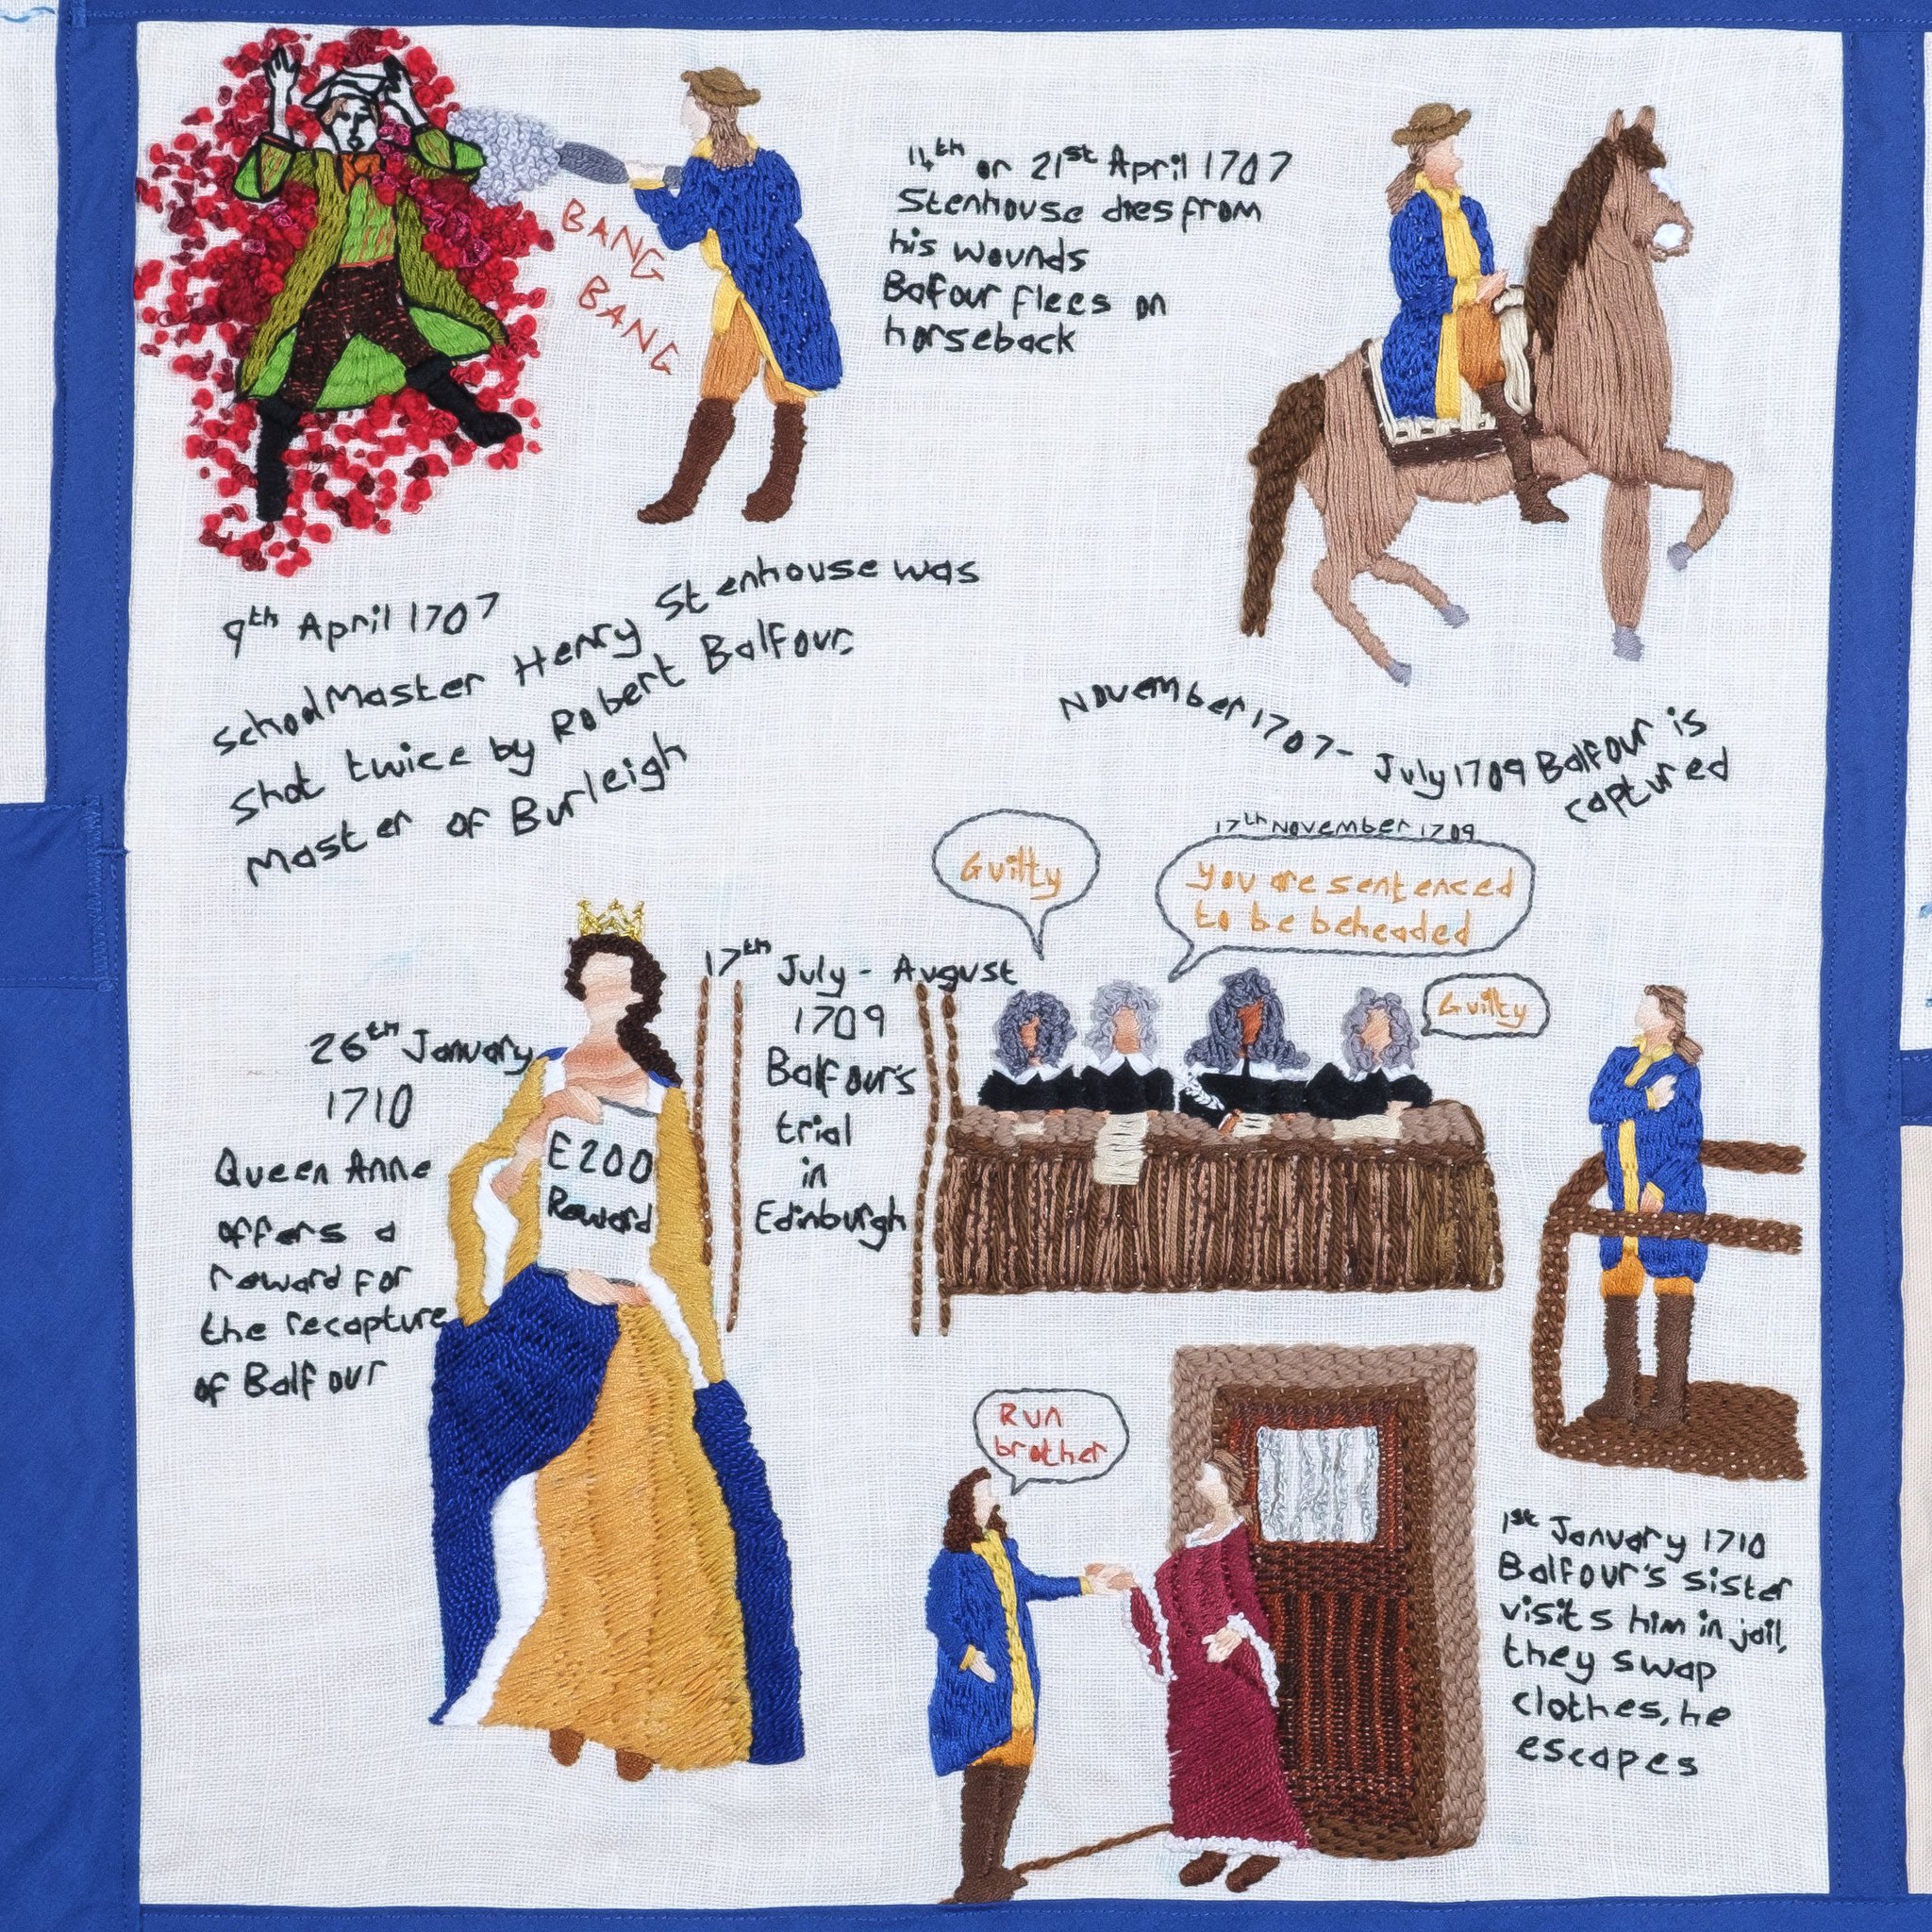 BANG
BANG
9th April 1707
School Master Henry Stenhouse was
Shot twice by Robert Balfour.
Master of Burleigh
14th or 21st April 1707
Stenhouse dies from
his wounds
Bafour flees on
horseback
November 1707 - July 1709 Balfour is
captured
17th July - August
1709
Balfour's
trial
in
Edinburgh
Guilty
17th November 1709
You are sentenced
to be beheaded
Guilty
Run
brother
1st January 1710
Balfour's sister
visits him in jail,
they swap
clothes, he
escapes
26th January
1710
Queen Anne
offers a
reward for
the recapture
of Balfour
£200
Reward